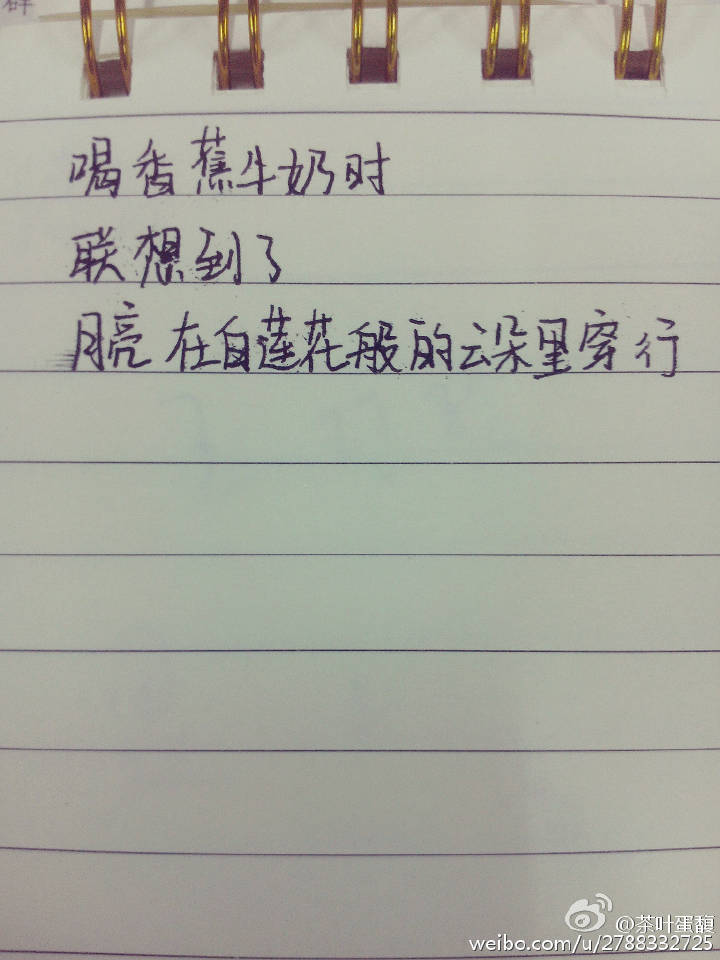 群
喝香蕉牛奶时
联想到了
月亮在白莲花般的云朵里穿行
@茶叶蛋馥
weibo.com/u/2788332725